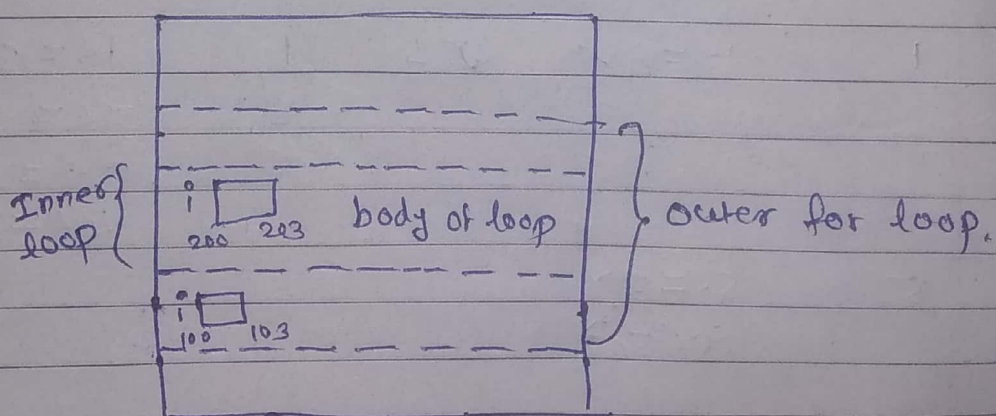 Inner
loop
i
200 203
body of loop
outer for loop.
i
100 103